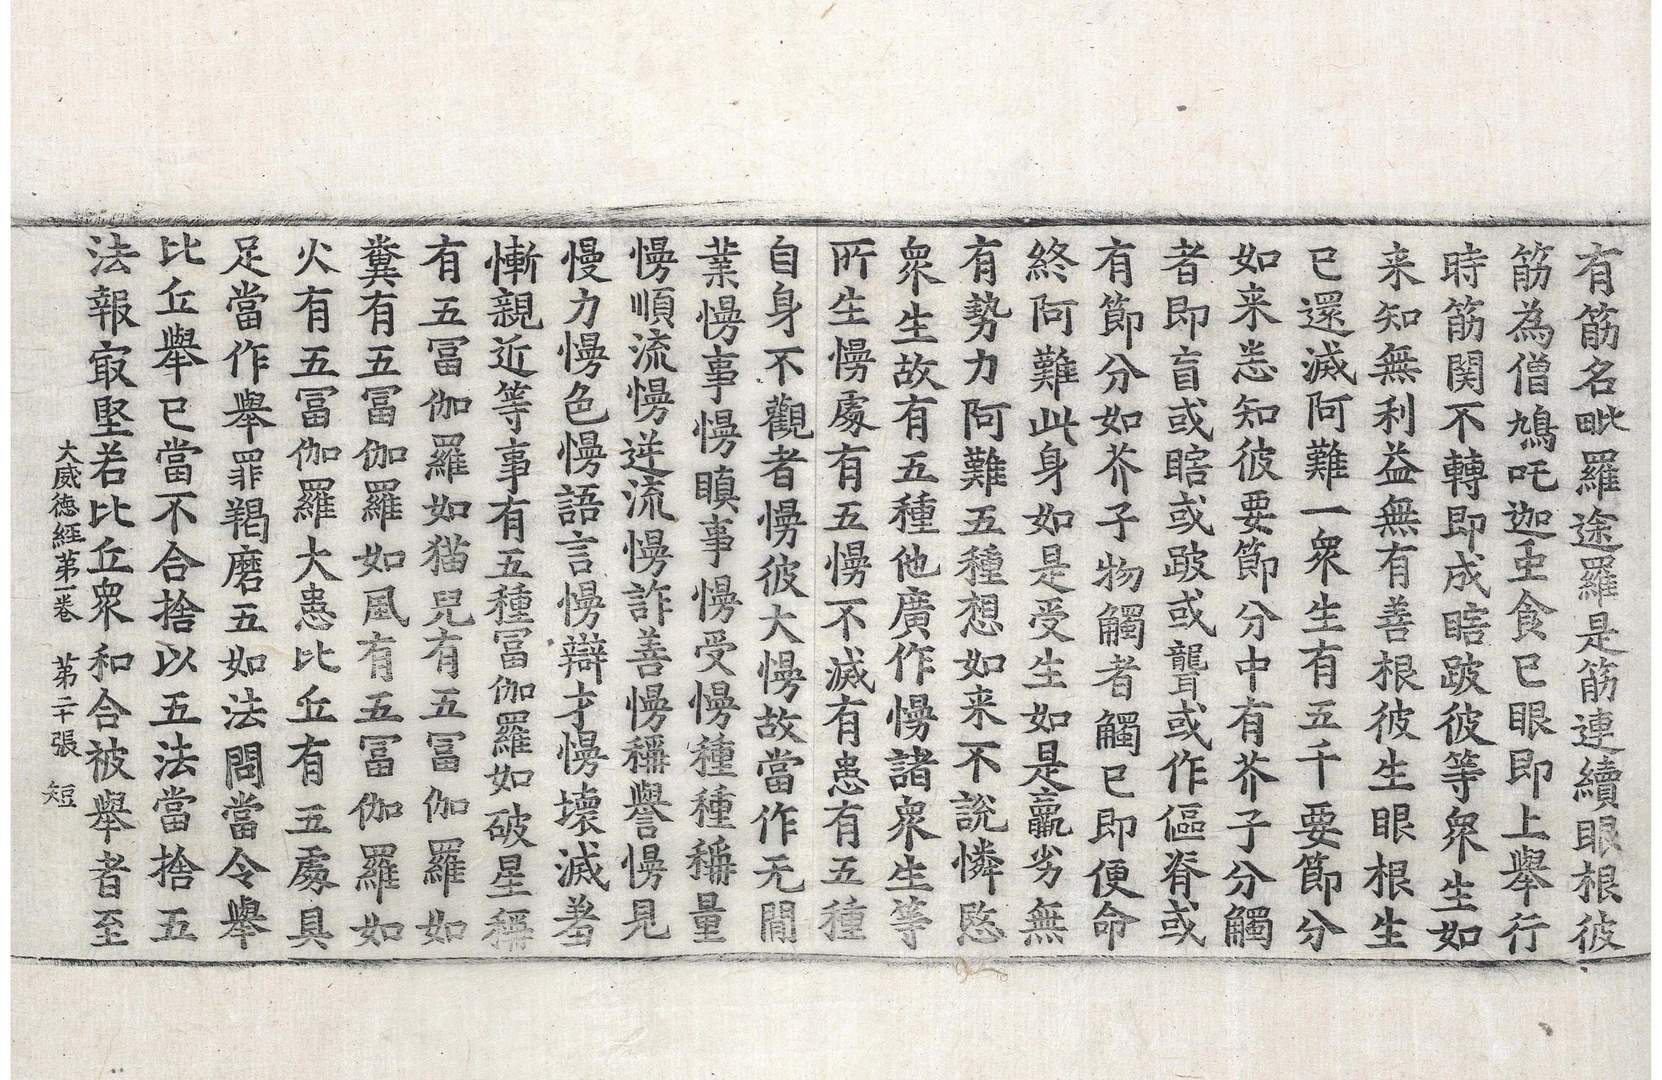 有筋名毗羅途羅是筋連續眼根彼
筋為僧鳩吒迦重食已眼即上舉行
時筋関不轉即成瞎跛彼等衆生如
来知無利益無有善根彼生眼根生
已還滅阿難一衆生有五千要節分
如来悉知彼要節分中有芥子分觸
者即盲或瞎或跛或聾或作傴脊或
有節分如芥子物觸者觸已即便命
終阿難此身如是受生如是羸劣無
有勢力阿難五種想如来不說憐愍
衆生故有五種他廣作慢諸衆生等
所生慢處有五慢不滅有患有五種
自身不觀者慢彼大慢故當作无間
業慢事慢瞋事慢受慢種種稱量
慢順流慢逆流慢詐善慢稱譽慢見
慢力慢色慢語言慢辯才慢壞滅善
慚親近等事有五種冨伽羅如破星稱
有五冨伽羅如猫兒有五冨伽羅如
糞有五冨伽羅如風有五冨伽羅如
火有五冨伽羅大患比丘有五處具
足當作舉罪羯磨五如法問當令舉
比丘舉已當不合捨以五法當捨五
法報㝡堅若比丘衆和合被舉者至
大威德經第一卷　第二十張　短